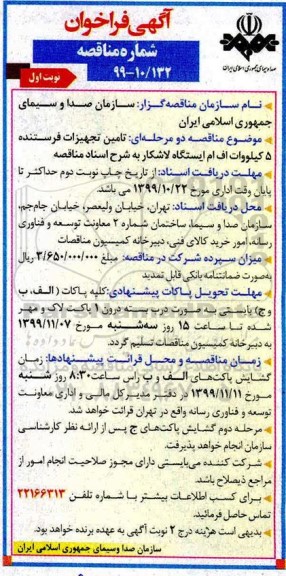 آگهی فراخوان
شماره مناقصه
۹۹-۱۰/۱۳۲
نوبت اول
صدا و سیمای جمهوری اسلامی ایران
نام سازمان مناقصه‌گزار: سازمان صدا و سیمای
جمهوری اسلامی ایران
موضوع مناقصه دو مرحله‌ای: تامین تجهیزات فرستنده
۵ کیلووات اف ام ایستگاه لاشکار به شرح اسناد مناقصه
مهلت دریافت اسناد: از تاریخ چاپ نوبت دوم حداکثر تا
پایان وقت اداری مورخ ۱۳۹۹/۱۰/۲۲ می باشد.
محل دریافت اسناد: تهران، خیابان ولیعصر، خیابان جام‌جم،
سازمان صدا و سیما، ساختمان شماره ۲ معاونت توسعه و فناوری
رسانه، امور خرید کالای فنی، دبیرخانه کمیسیون مناقصات
میزان سپرده شرکت در مناقصه: مبلغ ۳/۶۵۰/۰۰۰/۰۰۰ ریال
به‌صورت ضمانتنامه بانکی قابل تمدید
مهلت تحویل پاکات پیشنهادی: کلیه پاکات (الف، ب
و ج) بایستی به صورت درب بسته درون ۱ پاکت لاک و مهر
شده تا ساعت ۱۵ روز سه‌شنبه مورخ ۱۳۹۹/۱۱/۰۷
به دبیرخانه کمیسیون مناقصات تسلیم گردد.
زمان مناقصه و محل قرائت پیشنهادها: زمان
گشایش پاکت‌های الف و ب راس ساعت ۸:۳۰ روز شنبه
مورخ ۱۳۹۹/۱۱/۱۱ در دفتر مدیرکل مالی و اداری معاونت
توسعه و فناوری رسانه واقع در تهران قرائت خواهد شد.
مرحله دوم گشایش پاکت‌های ج پس از ارائه نظر کارشناسی
سازمان انجام خواهد پذیرفت.
شرکت کننده می‌بایستی دارای مجوز صلاحیت انجام امور از
مراجع ذیصلاح باشد.
برای کسب اطلاعات بیشتر با شماره تلفن ۲۲۱۶۶۳۱۳
تماس حاصل فرمائید.
بدیهی است هزینه درج ۲ نوبت آگهی به عهده برنده خواهد بود.
سازمان صدا وسیمای جمهوری اسلامی ایران